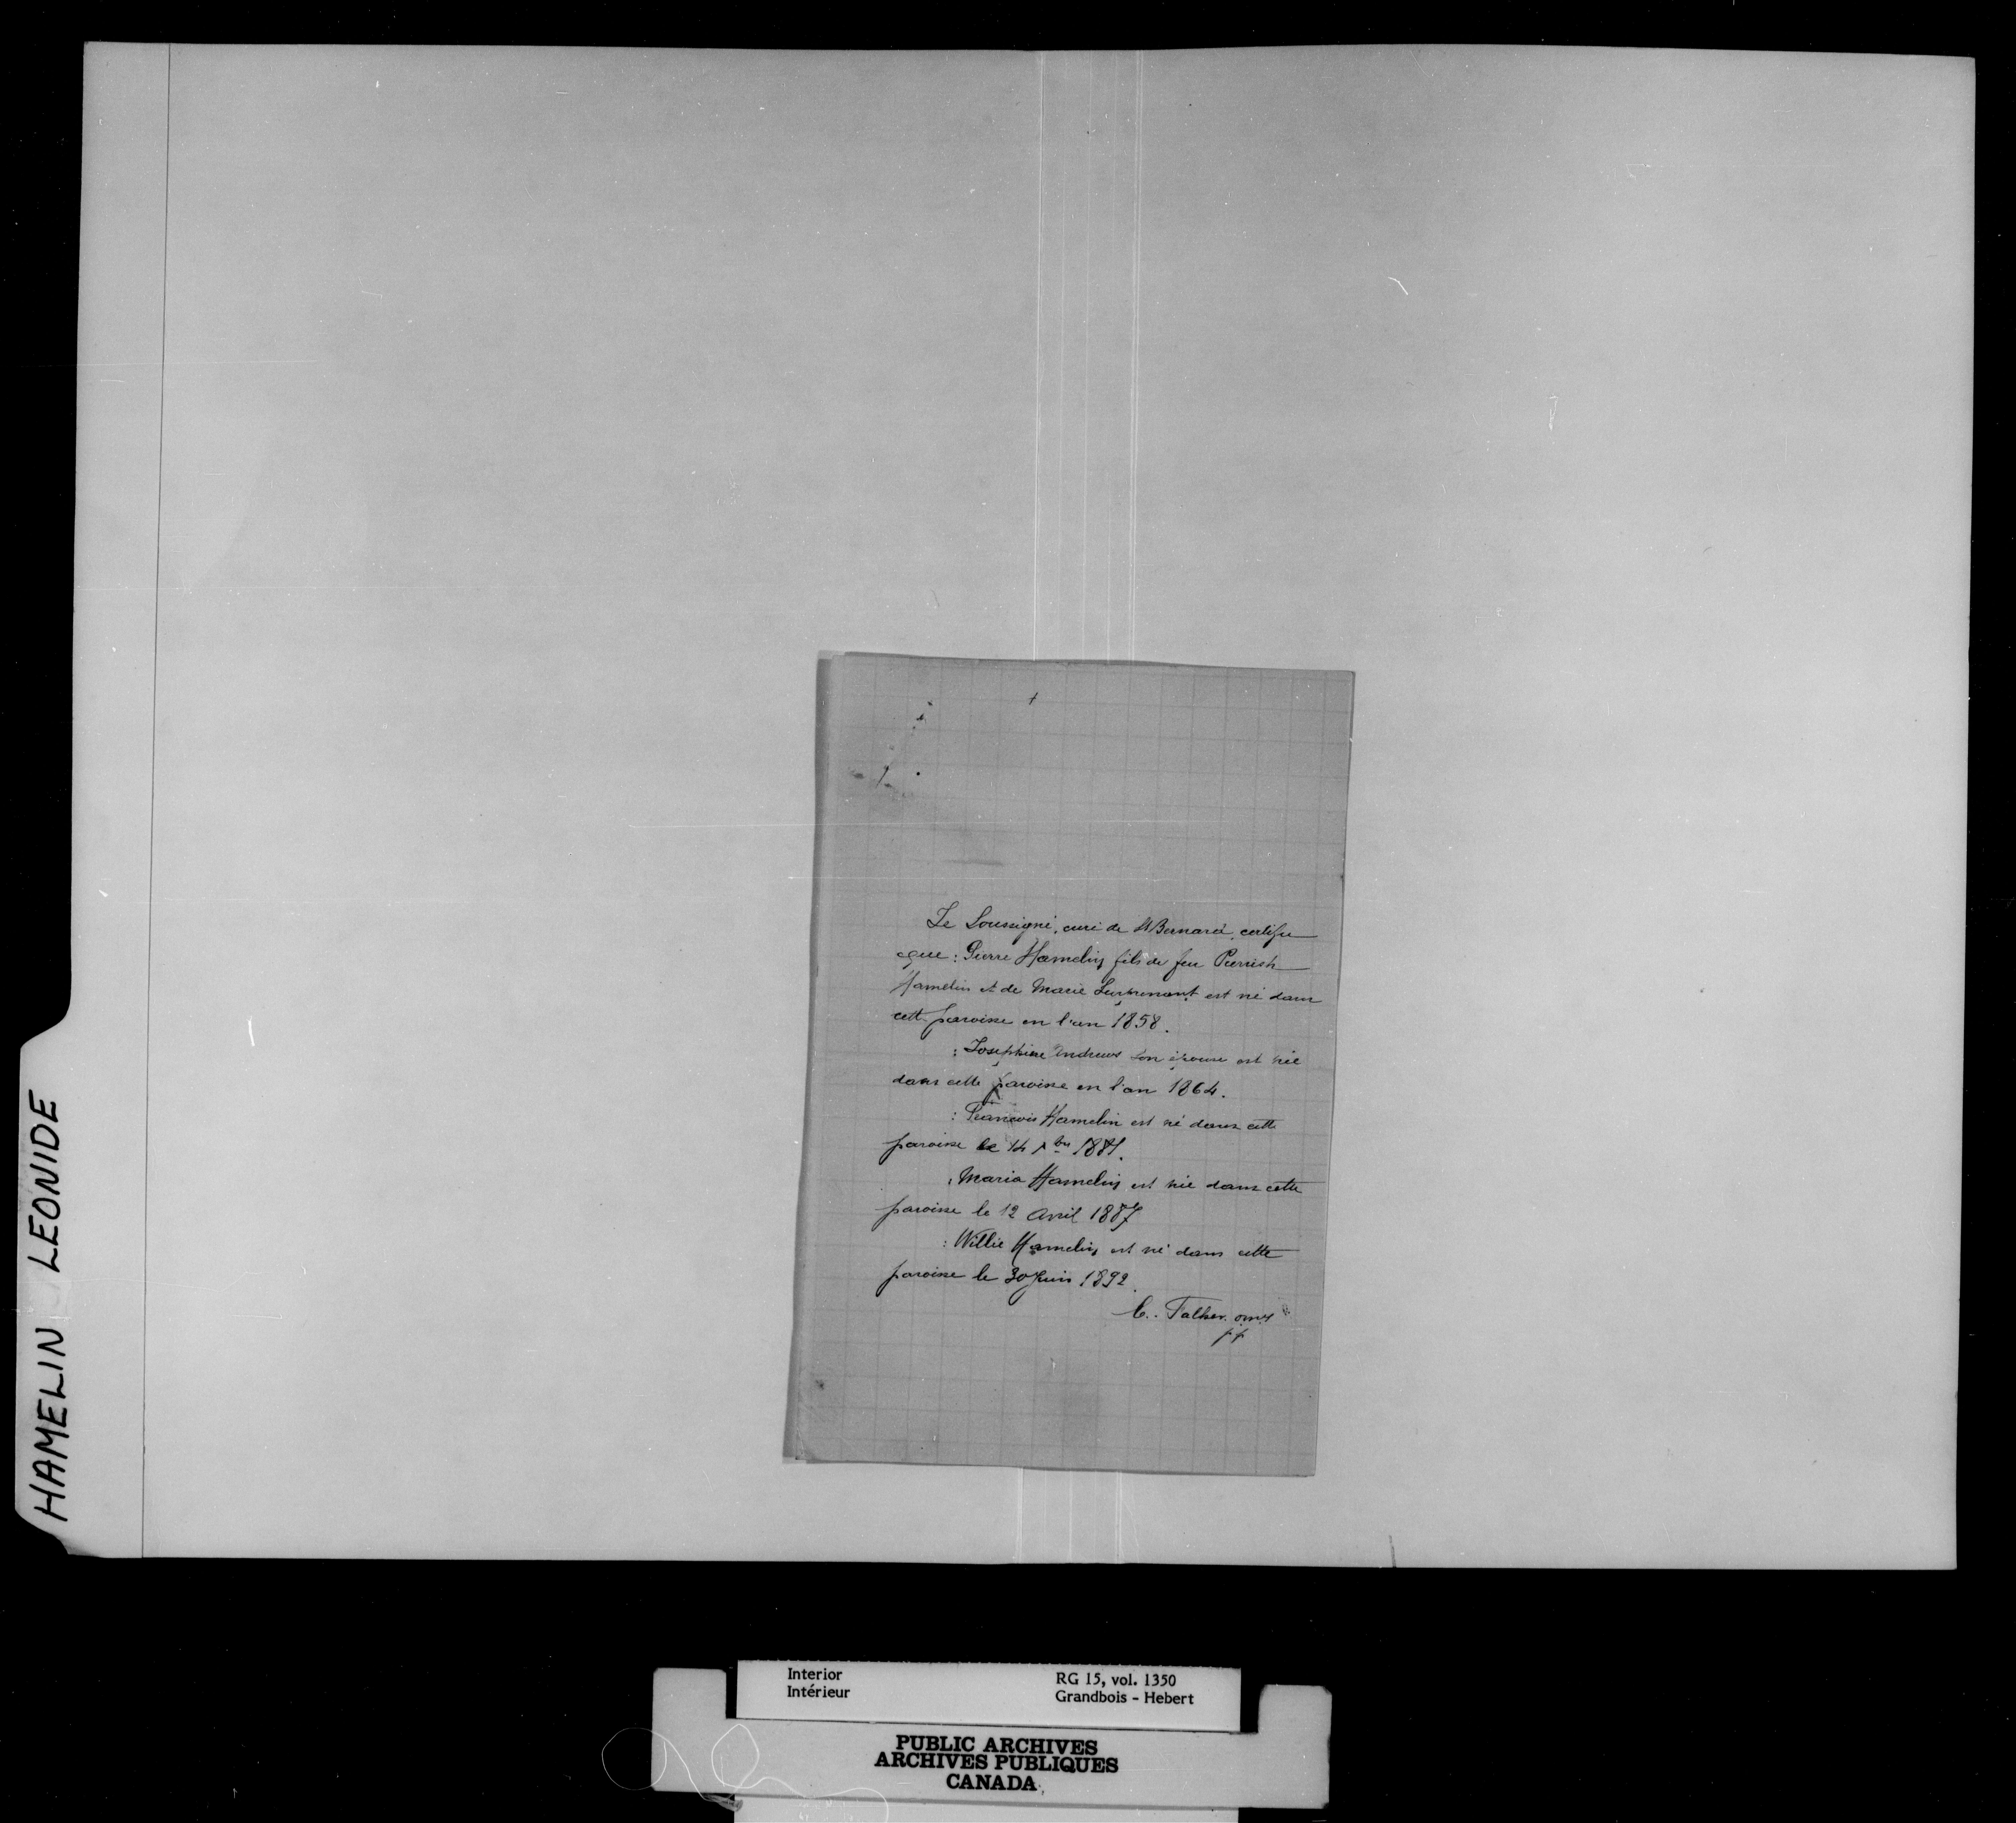 HAMELIN LEONIDE
+
Le Soussigné, curé de St Bernard, certifie
que : Pierre Hamelin fils de feu Pierrish
Hamelin et de Marie est né dans
cette paroisse en l'an 1858.
: Josephine Andrews son épouse est née
dans cette paroisse en l'an 1864.
: François Hamelin est né dans cette
paroisse le 14
: Maria Hamelin est née dans cette
paroisse le 12 Avril 1887
: Willie Hamelin est né dans cette
paroisse le 30 Juin 1892.
Interior
Intérieur
RG 15, vol. 1350
Grandbois - Hebert
PUBLIC ARCHIVES
ARCHIVES PUBLIQUES
CANADA